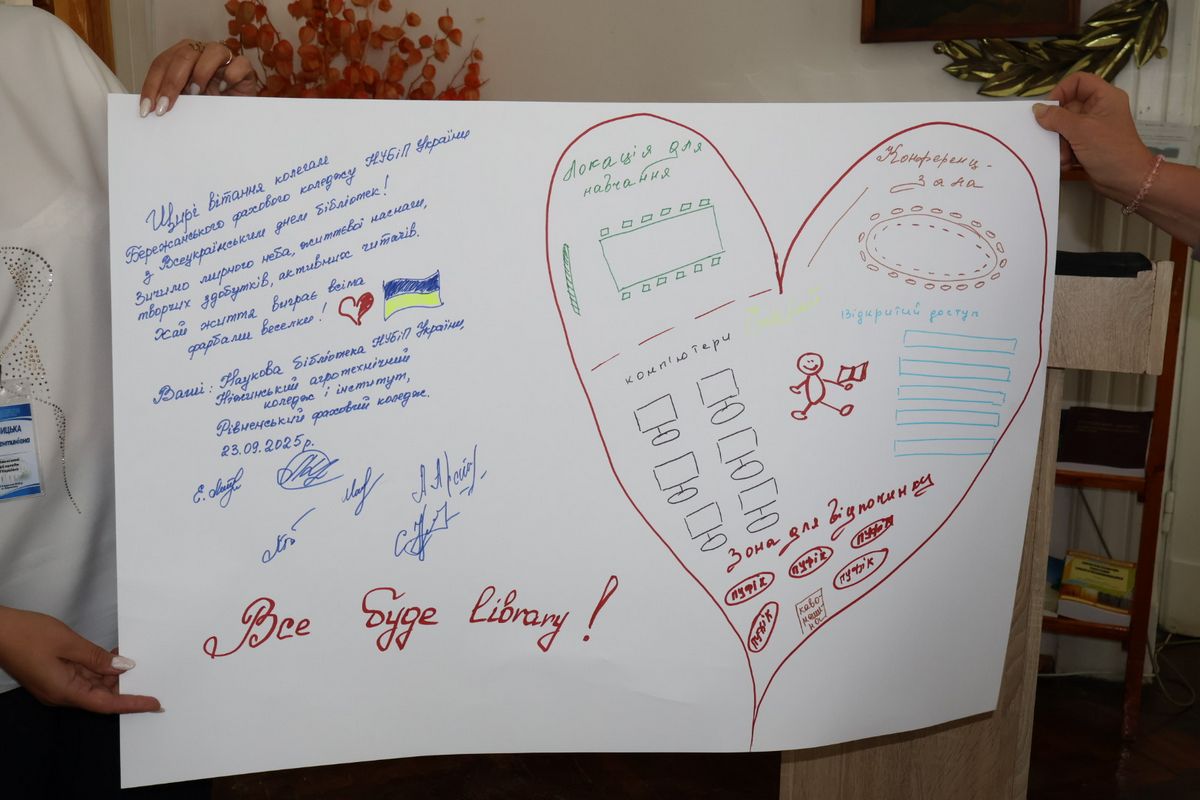 Щирі вітання колегам
Бережанського фахового коледжу НУБіП України
з Всеукраїнським днем бібліотек!
Зичимо мирного неба, життєвої наснаги,
творчих здобутків, активних читачів.
Хай життя виграє всіма
фарбами веселки!
Ваші: Наукова бібліотека НУБіП України,
Ніжинський агротехнічний
коледж і інститут,
Рівненський фаховий коледж.
23.09.2025р.
Все буде library!
Локація для
навчання
Конференц-
зала
компʼютери
Відкритий доступ
Зона для відпочинку
пуфік
пуфік
пуфік
пуфік
пуфік
каво
маши
на